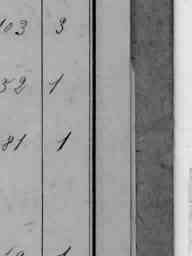 103 3
52 1
81 1